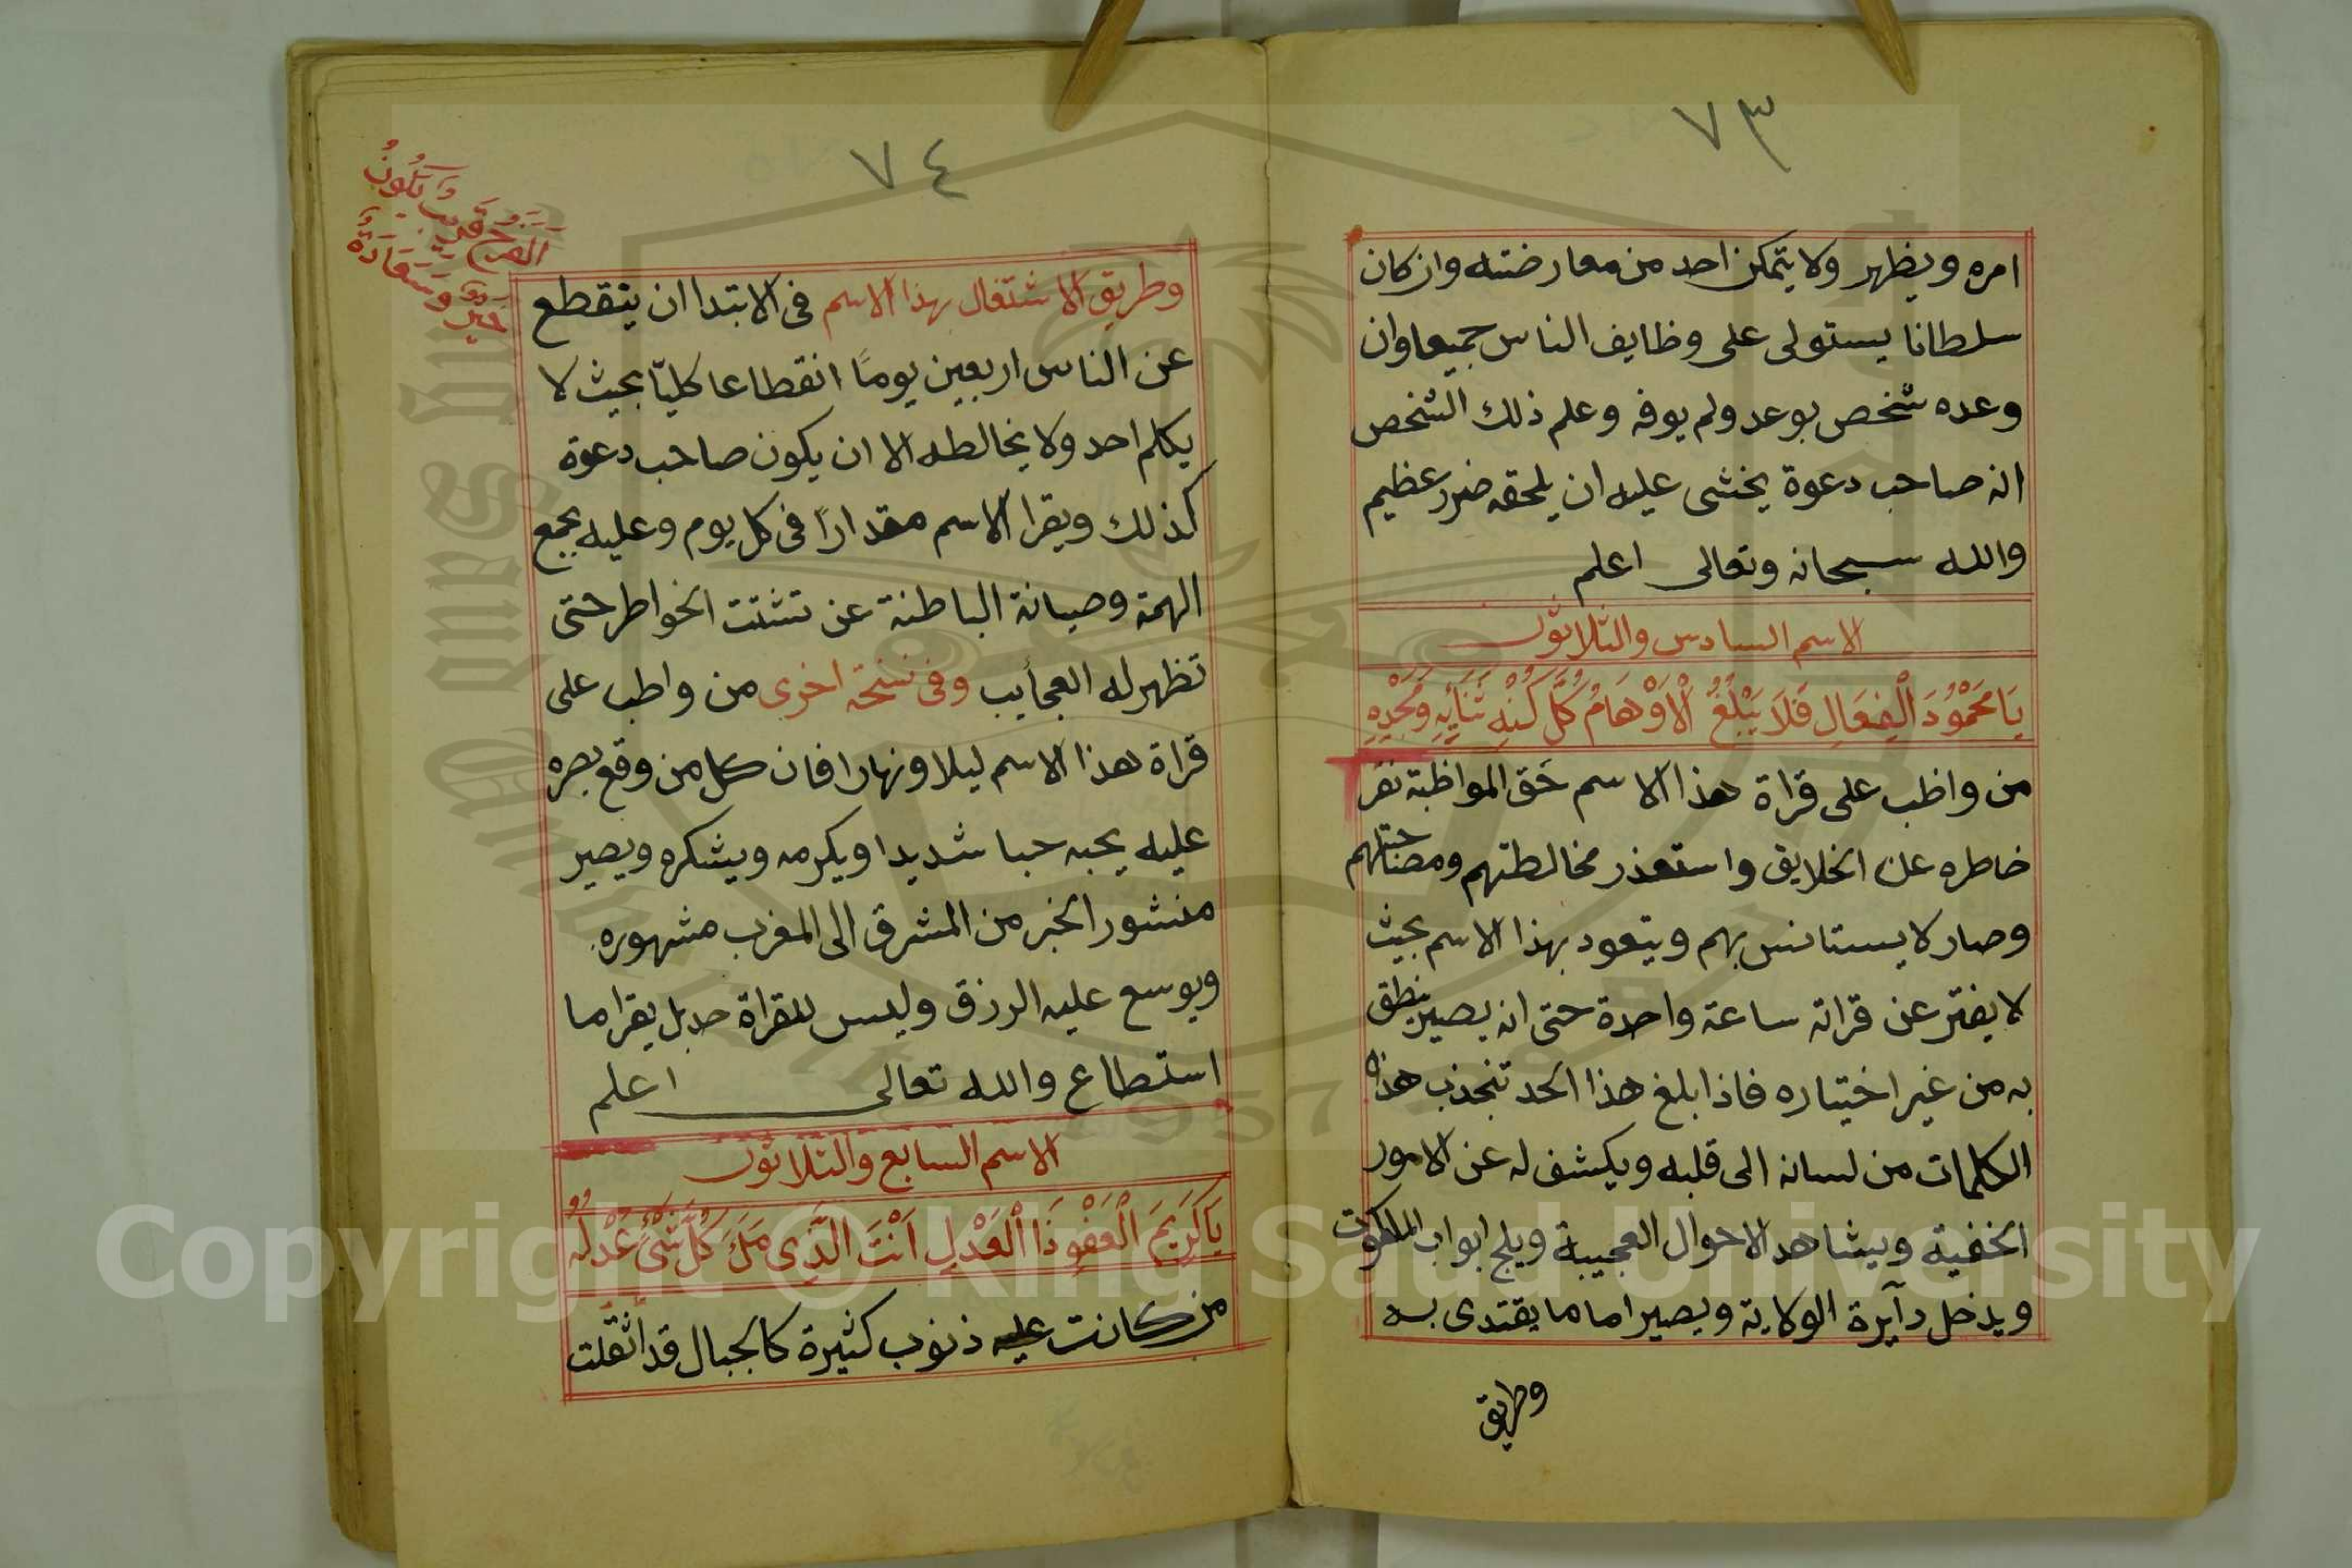 ٧٣
امره ويظهر ولا يتمكن احد من معارضته وان كان
سلطانا يستولى على وظايف الناس جميعا وان
وعده شخص بوعد ولم يوفه وعلم ذلك الشخص
انه صاحب دعوة يخشى عليه ان يلحقه ضرر عظيم
والله سبحانه وتعالى اعلم
الاسم السادس والثلاثون
يَا مَحْمُوْدَ الْفِعَالِ فَلَا يَبْلُغُ الْاَوْهَامُ كُلَّ كُنْهِ ثَنَايِهِ وَمَجْدِهِ
من واظب على قراة هذا الاسم حق المواظبة نفر
خاطره عن الخلايق واستعذر مخالطتهم ومصاحبتهم
وصار لا يستانس بهم ويتعود بهذا الاسم بحيث
لا يفتر عن قراته ساعة واحدة حتى انه يصير ينطق
به من غير اختياره فاذا بلغ هذا الحد تنجذب هذه
الكلمات من لسانه الى قلبه ويكشف له عن الامور
الخفية ويشاهد الاحوال العجيبة ويلج ابواب الملكوت
ويدخل دآيرة الولاية ويصير اماما يقتدى به
وطريق
٧٤
وطريق الاشتغال بهذا الاسم فى الابتدا ان ينقطع
عن الناس اربعين يومًا انقطاعا كليّا بحيث لا
يكلم احد ولا يخالطه الا ان يكون صاحب دعوة
كذلك ويقرا الاسم مقدارًا فى كل يوم وعليه بجمع
الهمة وصيانة الباطنة عن تشتت الخواطر حتى
تظهر له العجأيب وفى نسخة اخرى من واطب على
قراة هذا الاسم ليلا ونهارا فان كل من وقع بصره
عليه يحبه حبا شديدا ويكرمه ويشكره ويصير
منشور الخبر من المشرق الى المغرب مشهوره
ويوسع عليه الرزق وليس للقراة حد بل يقرا ما
استطاع والله تعالى اعلم
الاسم السابع والثلاثون
يَا كَرِيمَ الْعَفْوِ ذَا الْعَدْلِ اَنْتَ الَّذِى مَلَأَ كُلَّ شَىْءٍ عَدْلُهُ
من كانت عليه ذنوب كثيرة كالجبال قد اثقلت
وَيَكُونُ
الفَرَحُ قَرِيب
خَيْرٌ وَسَعَادَةٌ